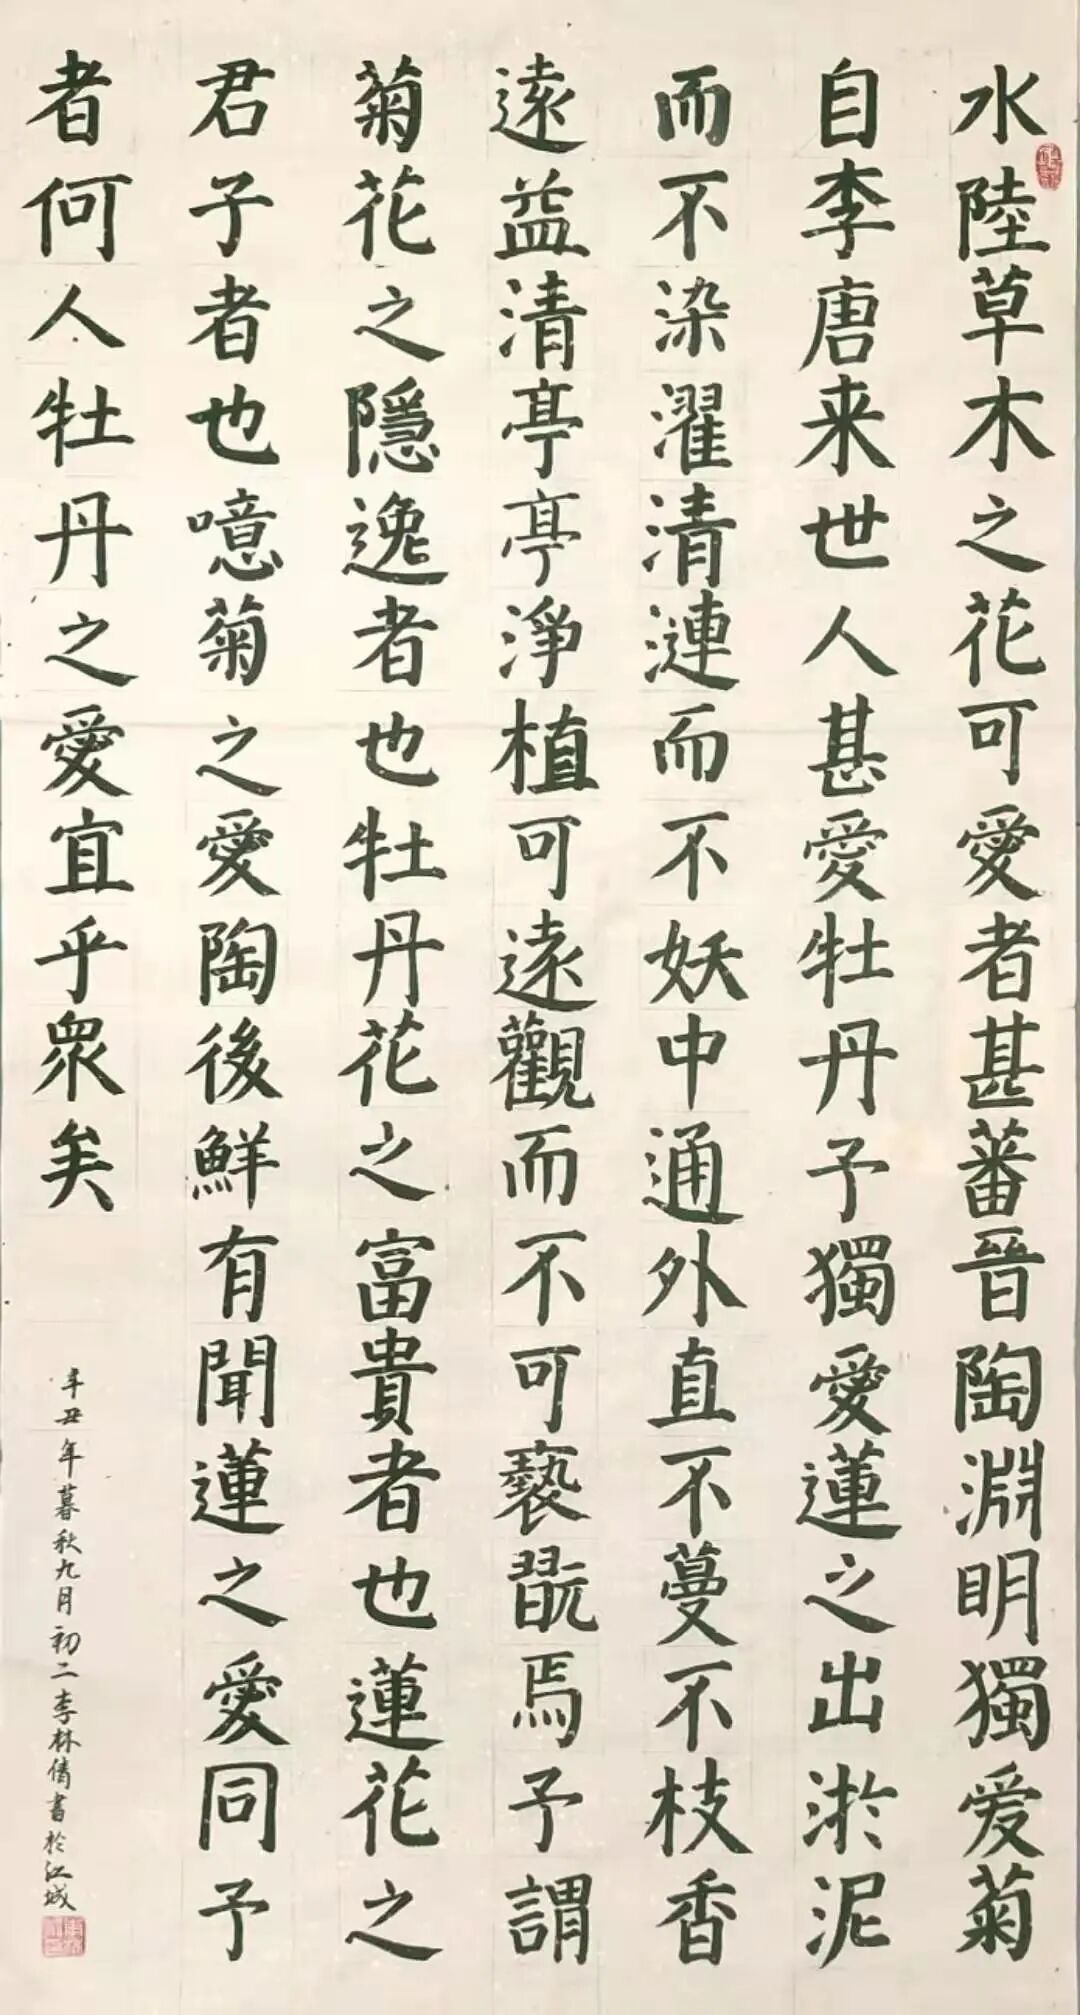 水陸草木之花可愛者甚蕃晉陶淵明獨爱菊
自李唐来世人甚愛牡丹予獨愛蓮之出淤泥
而不染濯清漣而不妖中通外直不蔓不枝香
遠益清亭亭淨植可遠觀而不可褻翫焉予謂
菊花之隱逸者也牡丹花之富貴者也蓮花之
君子者也噫菊之愛陶後鮮有聞蓮之愛同予
者何人牡丹之愛宜乎眾矣
辛丑年暮秋九月初二李林倩書於江城